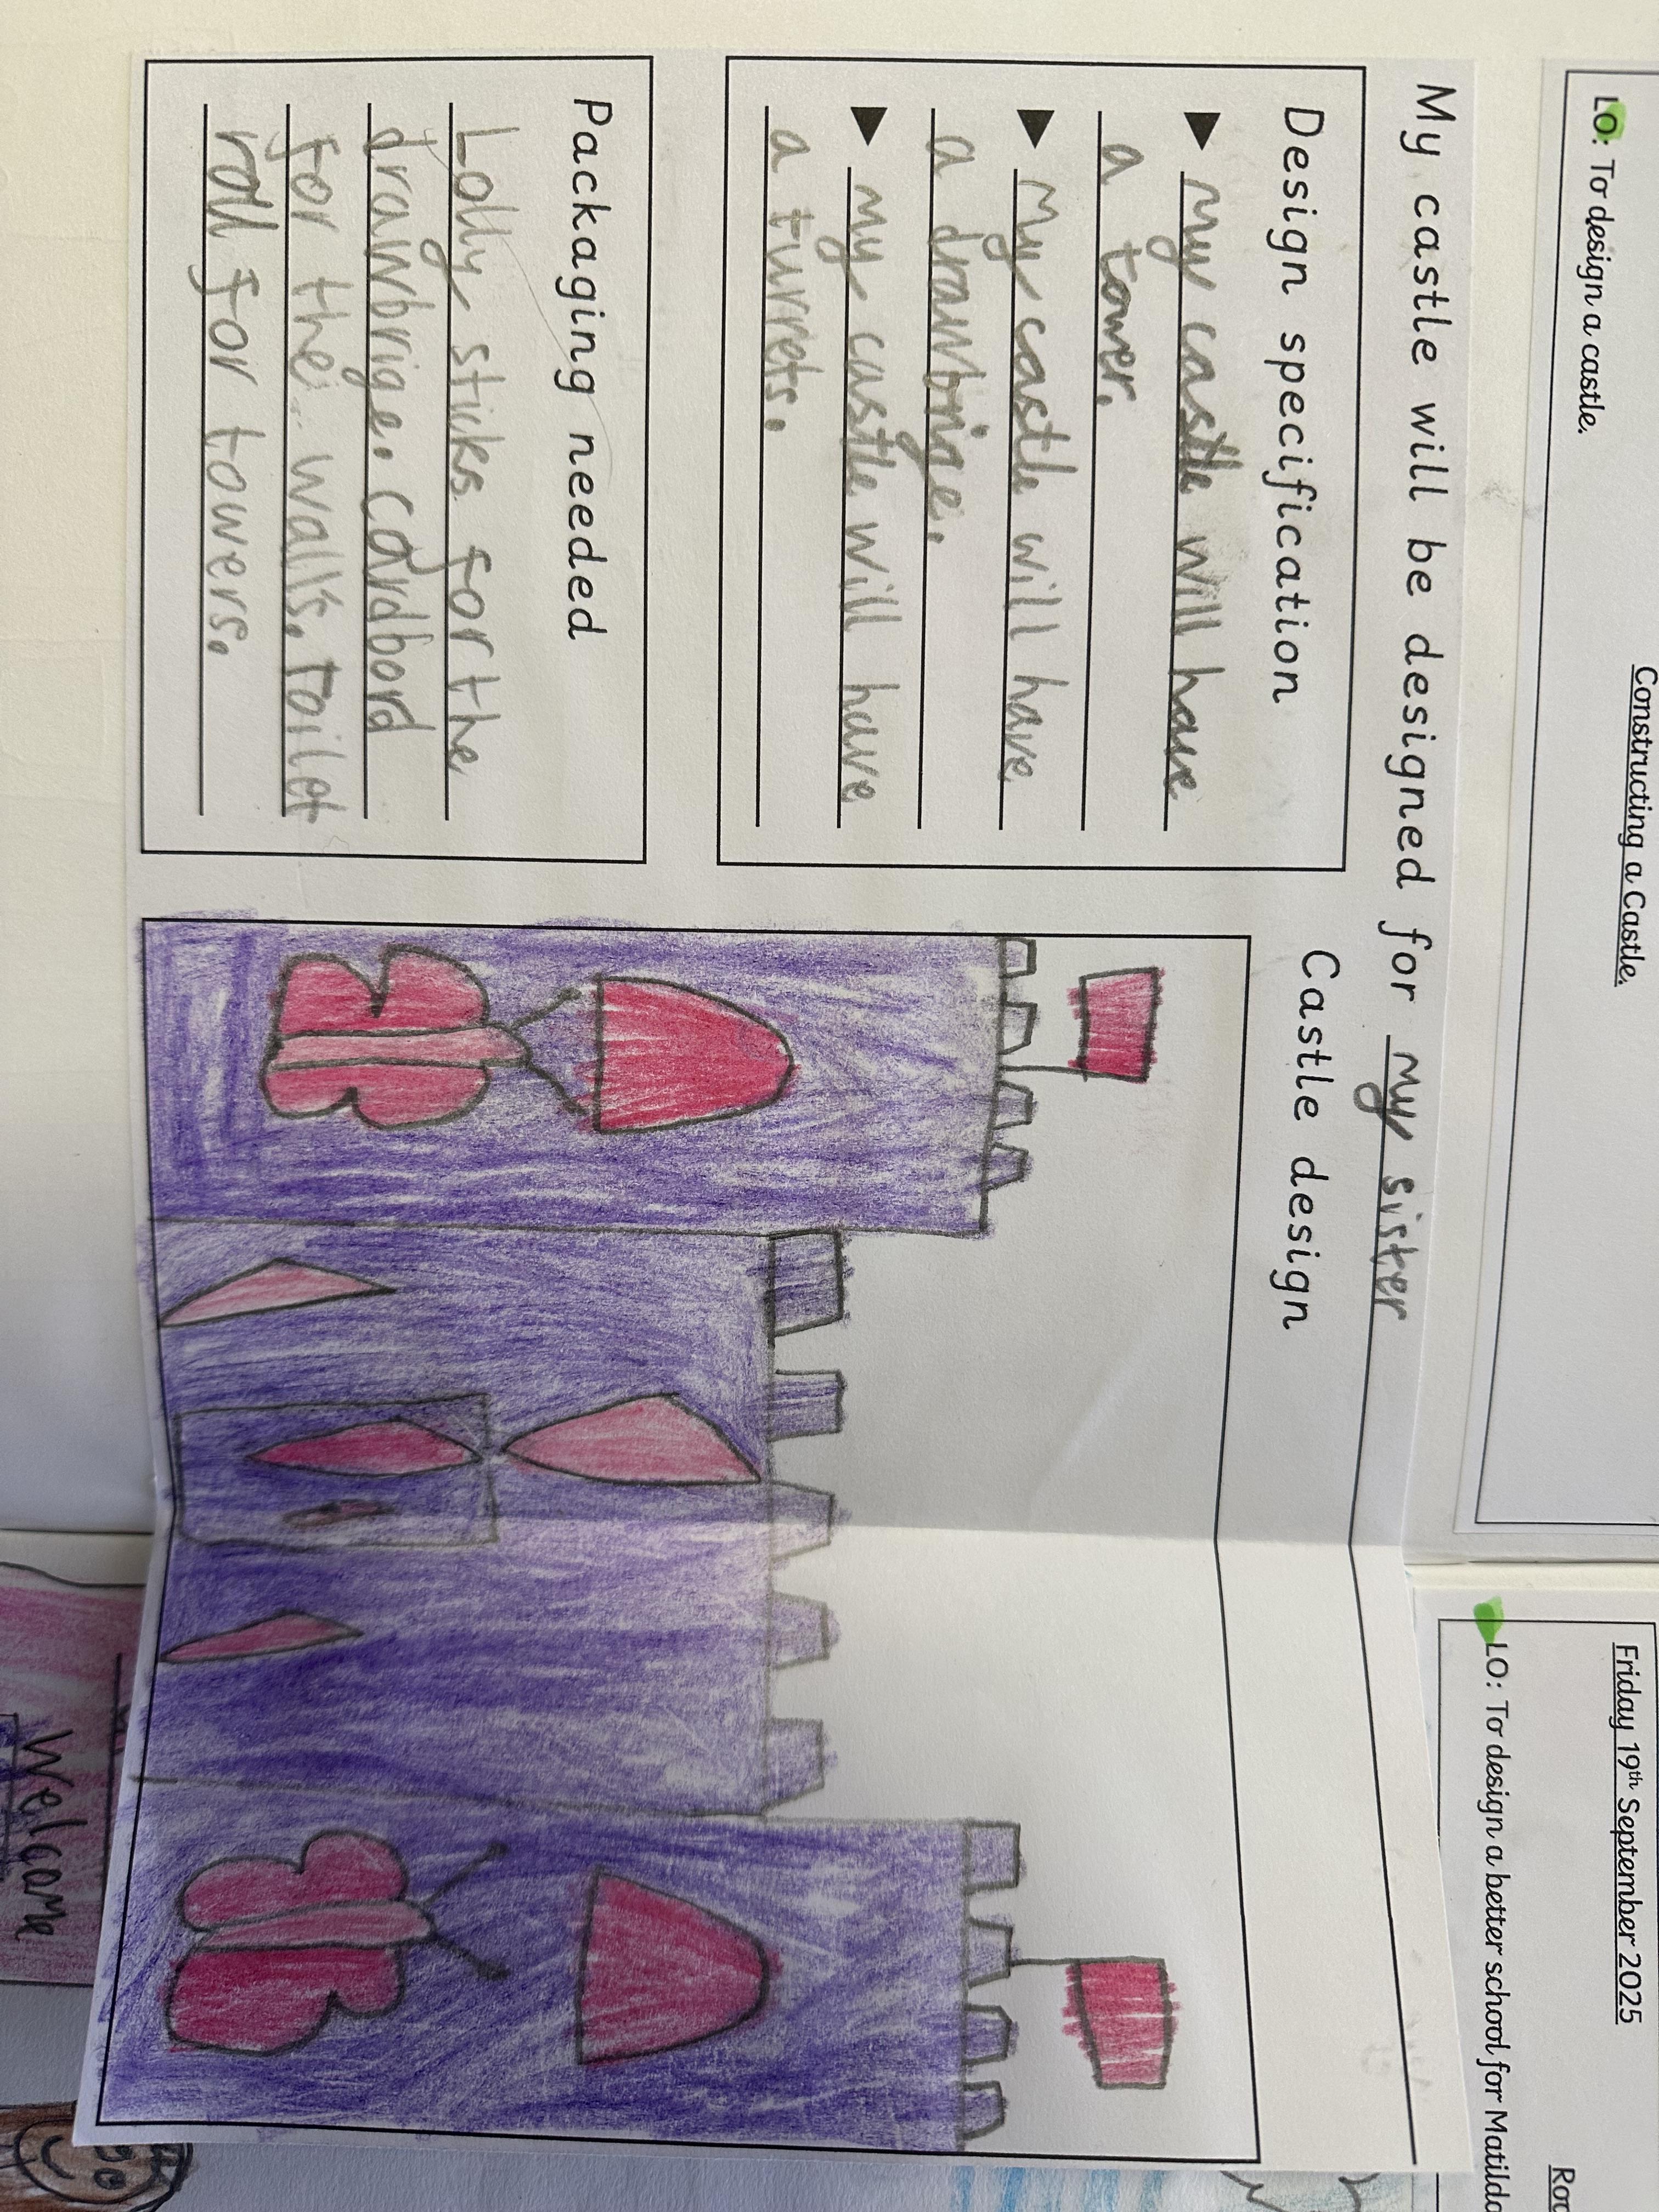 Constructing a Castle.
LO: To design a castle.
My castle will be designed for my sister
Design specification
my castle will have
a tower.
My castle will have
a drawbrige.
my castle will have
a turrets.
Packaging needed
Lolly sticks for the
drawbrige. cardbord
for the walls. toilet
roll for towers.
Castle design
Friday 19th September 2025
LO: To design a better school for Matilda
Welcome